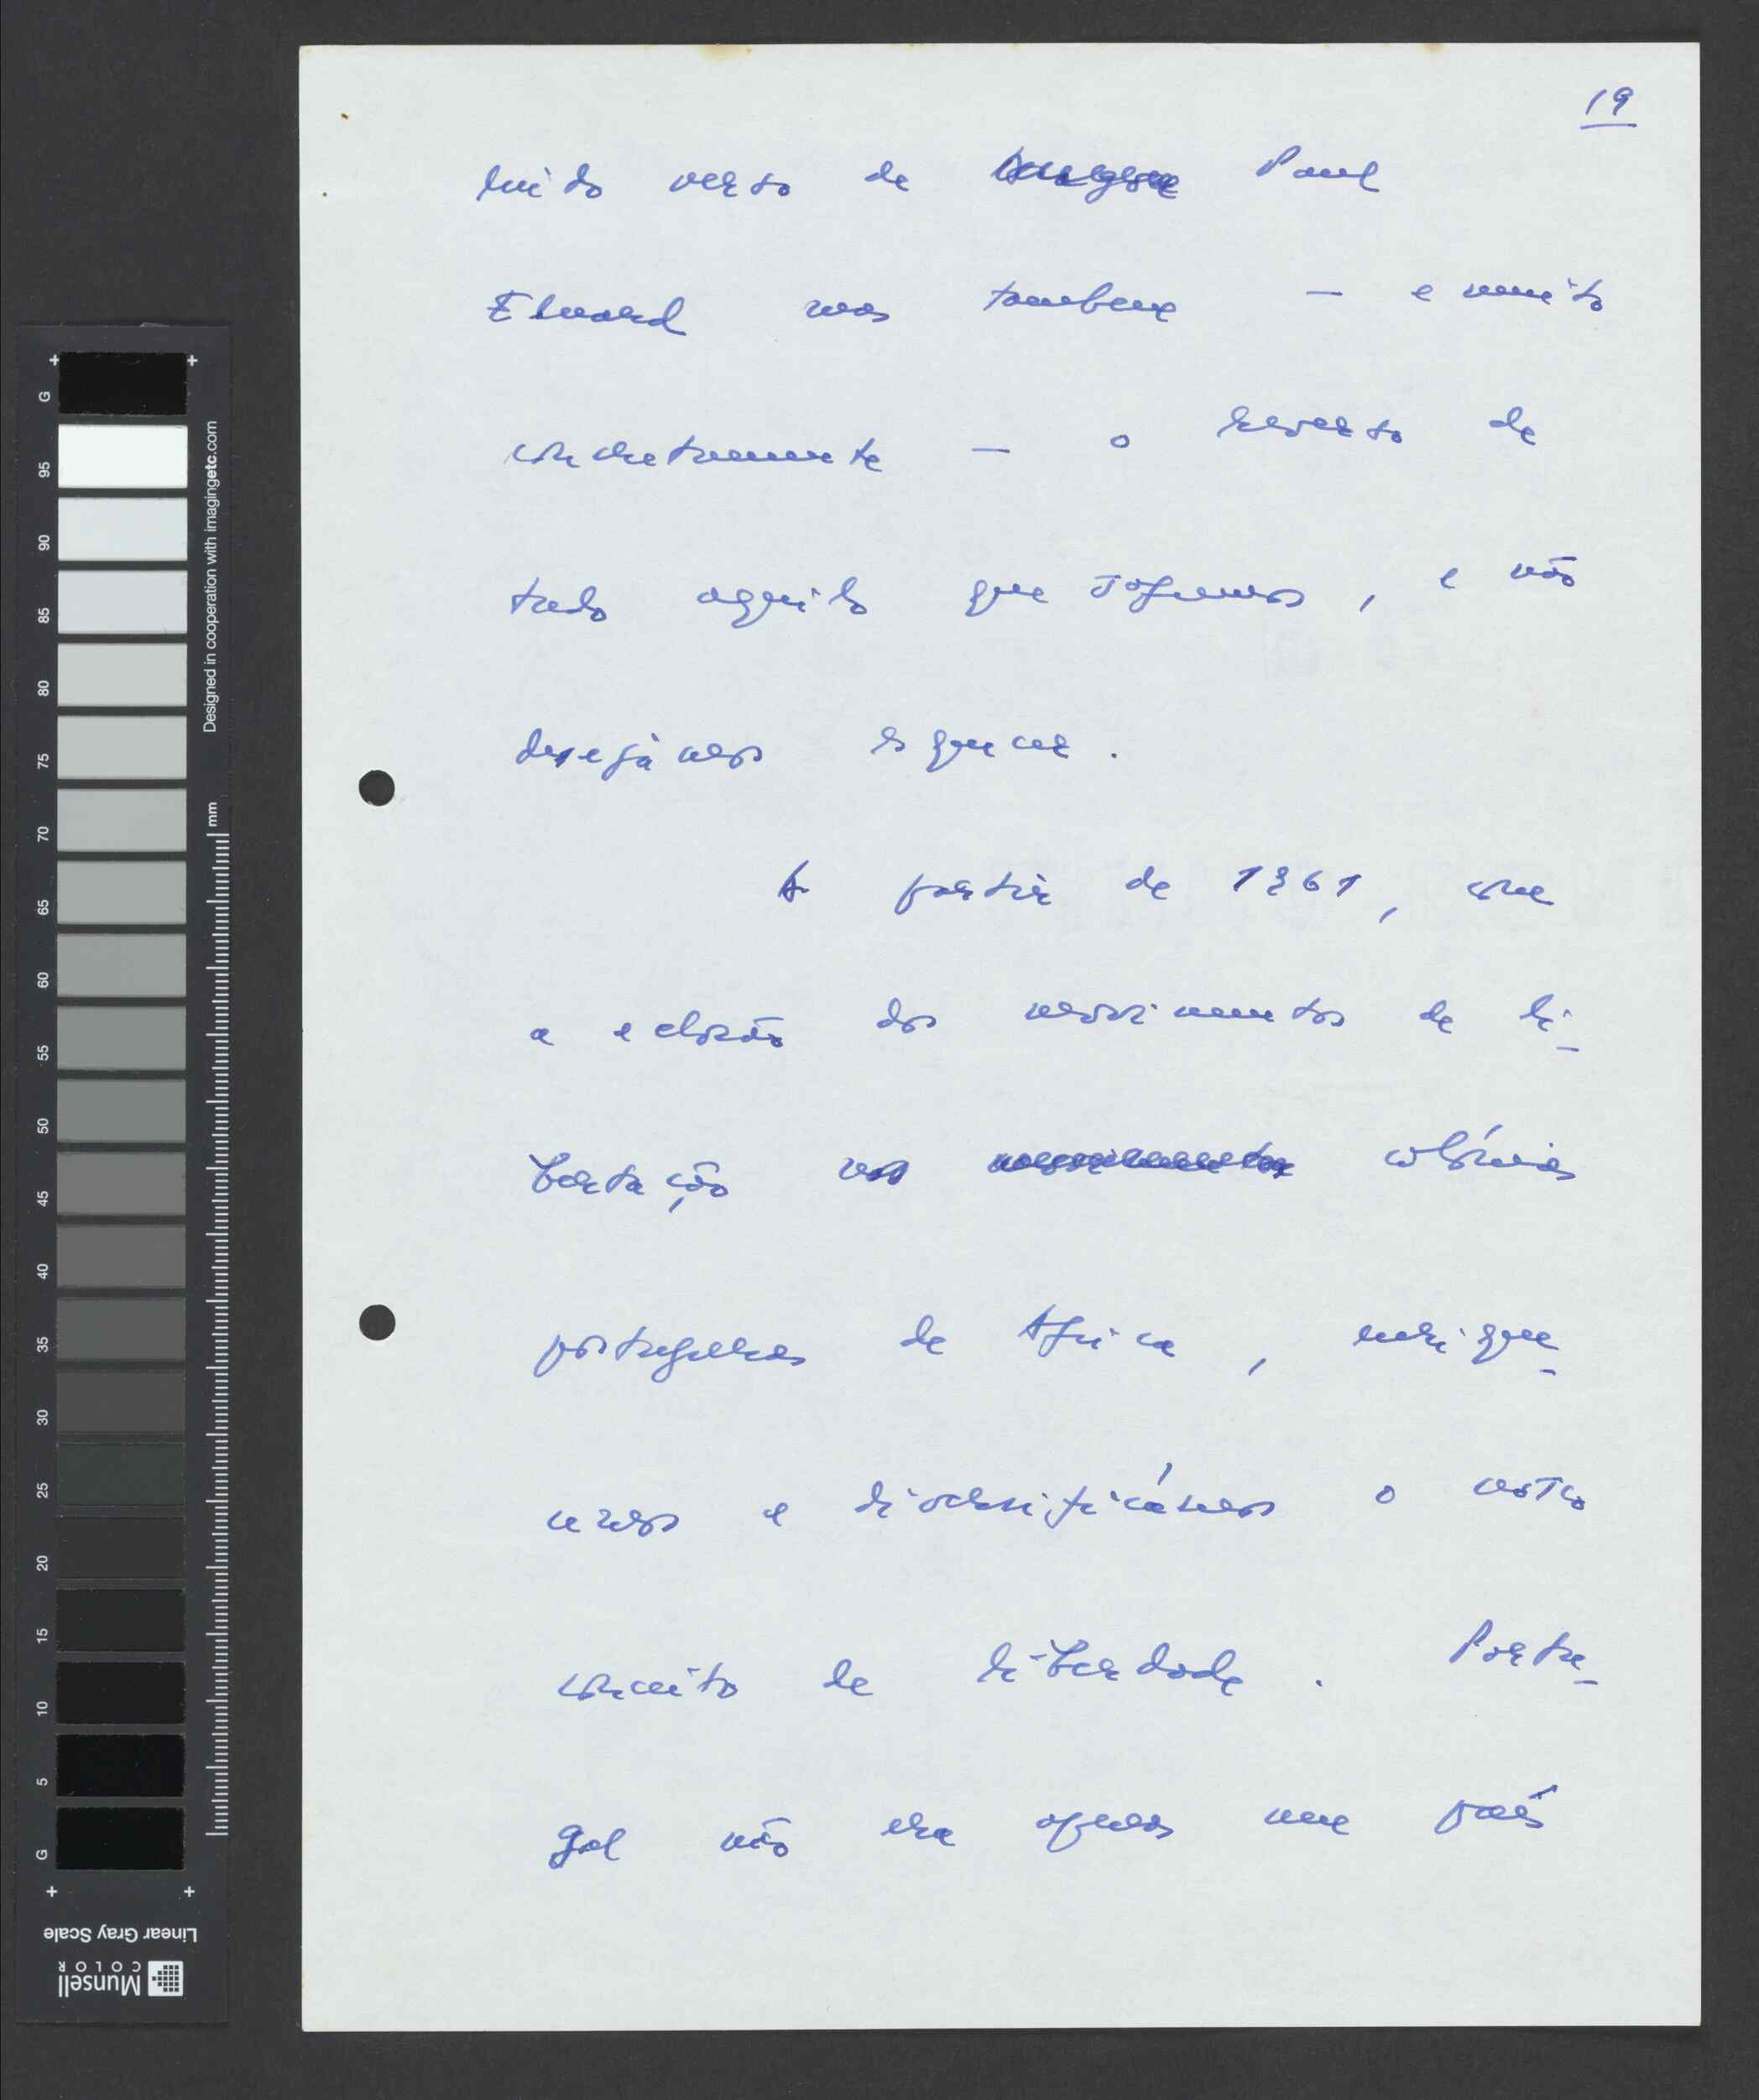 19
lindo verso de Paul
Eluard mas tambem — e muito
concretamente — o reverso de
tudo aquilo que sofremos, e não
desejámos esquecer.
A partir de 1961, com
a eclosão dos movimentos de li-
bertação nas colónias
portuguesas de Africa, enrique-
cemos e diversificámos o nosso
conceito de liberdade. Portu-
gal não era apenas um país
G
95
90
85
80
75
70
65
60
55
50
45
40
35
30
25
20
15
10
5
G
mm
Designed in cooperation with imagingetc.com
Linear Gray Scale
Munsell
COLOR